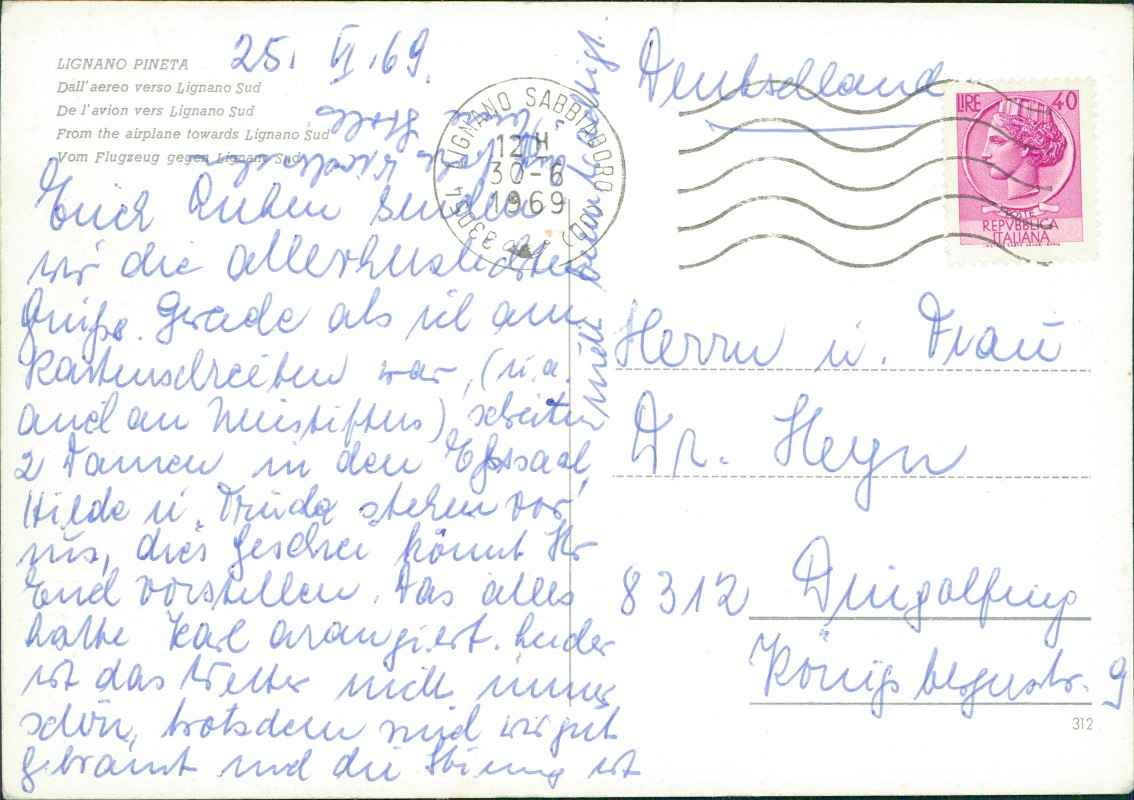 LIGNANO PINETA
Dall'aereo verso Lignano Sud
De l'avion vers Lignano Sud
From the airplane towards Lignano Sud
Vom Flugzeug gegen Lignano Sud
25. VI. 69.
Euch Lieben senden
wir die allerherzlichsten
Grüße. Gerade als ich am
Kartenschreiben war, (u. a.
auch an Neustifters), schreiten
2 Damen in den Eßsaal,
Hilde u. Truda stehen vor
uns, dies Geschrei könnt Ihr
Euch vorstellen. Das alles
hatte Karl arangiert. Leider
ist das Wetter nicht immer
schön, trotzdem sind wir gut
gebräunt und die Stimmung ist
nicht
33054 LIGNANO SABBIADORO (UD)
12 H
30-6
1969
LIRE 40
POSTE
REPVBBLICA
ITALIANA
Deutschland
Herrn u. Frau
Dr. Heyn
8312 Dingolfing
Königsbergerstr. 9
312